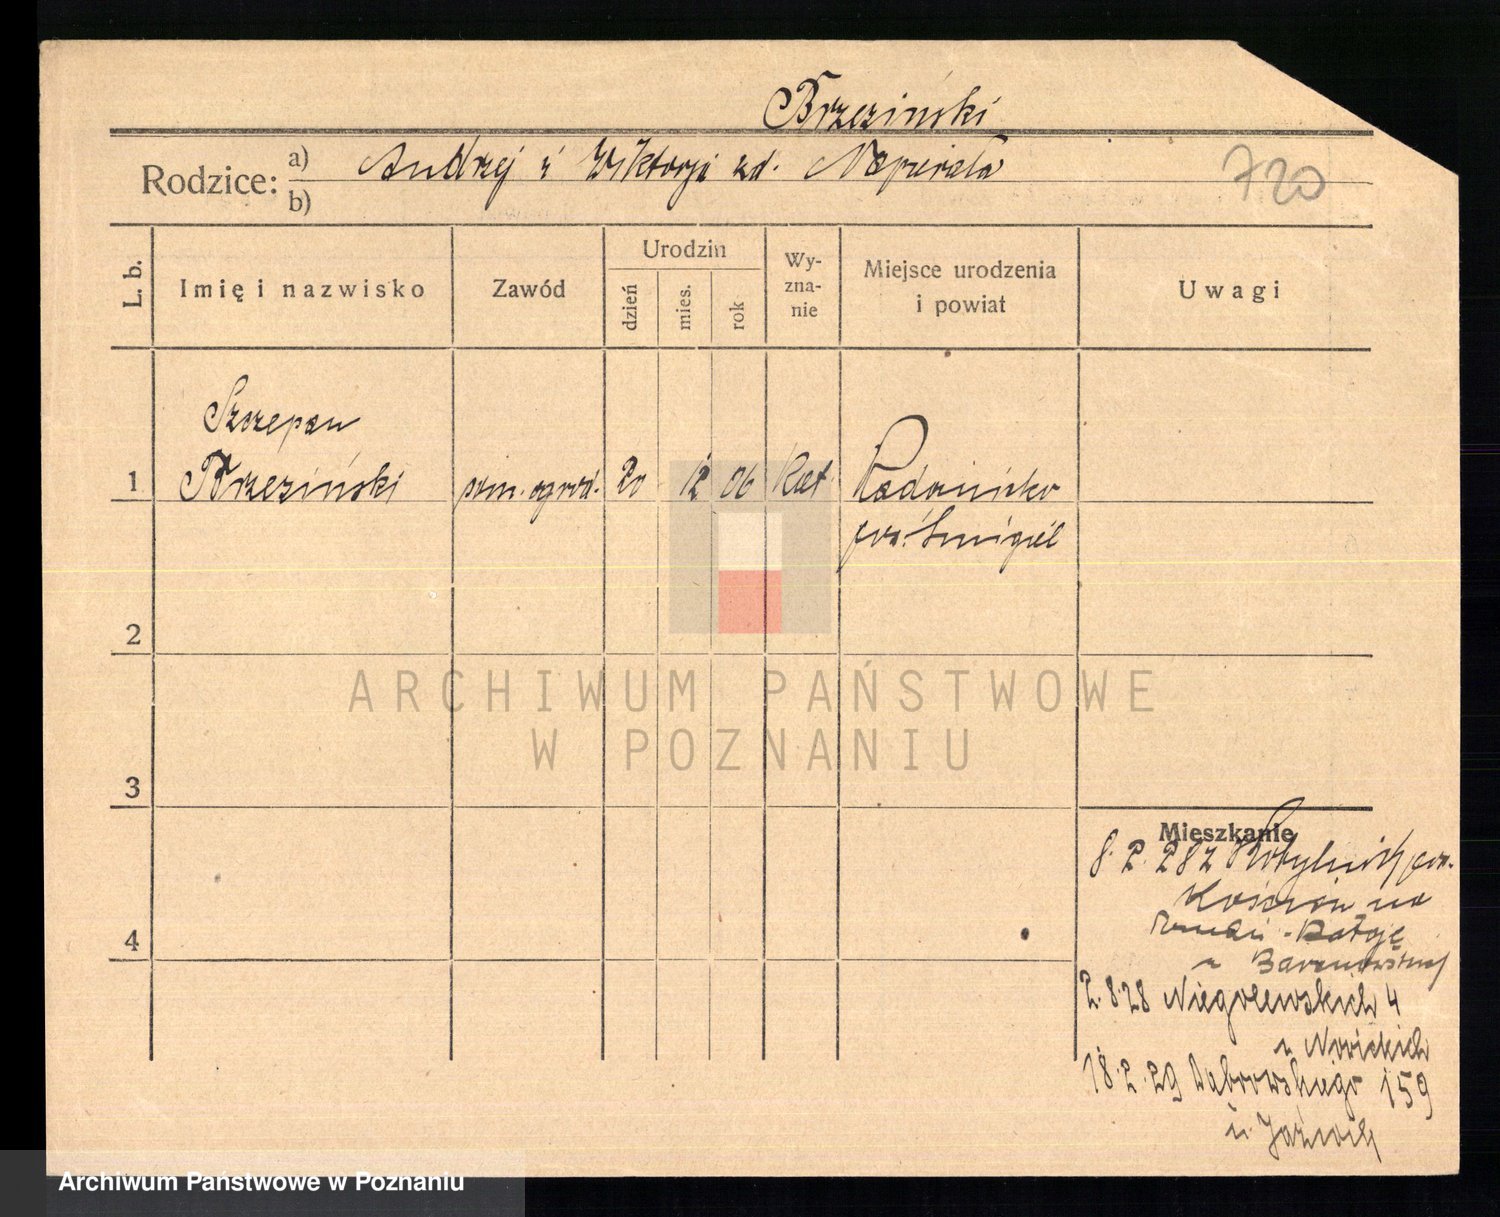 Brzeziński
Rodzice: a) Andrzej i Wiktorja zd. Napierała
b)
720
L. b.
Imię i nazwisko
Zawód
Urodzin
dzień
mies.
rok
Wy-
zna-
nie
Miejsce urodzenia
i powiat
Uwagi
Szczepan
1 Brzeziński pom. ogrod. 20 12 06 Kat. Radomicko
pow. Śmigiel
2
3
4
Mieszkanie
8. 2. 28 z pow.
Kościan na
u
2. 8. 28 Niegolewskich 4
u Nowickich
18. 2. 29 Dąbrowskiego 159
u
ARCHIWUM PAŃSTWOWE
W POZNANIU
Archiwum Państwowe w Poznaniu